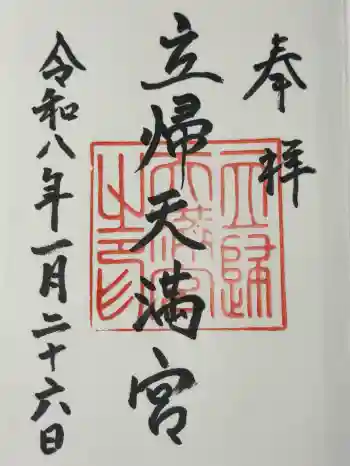 奉拝
立帰天満宮
立帰
天満宮
之印
令和八年一月二十六日